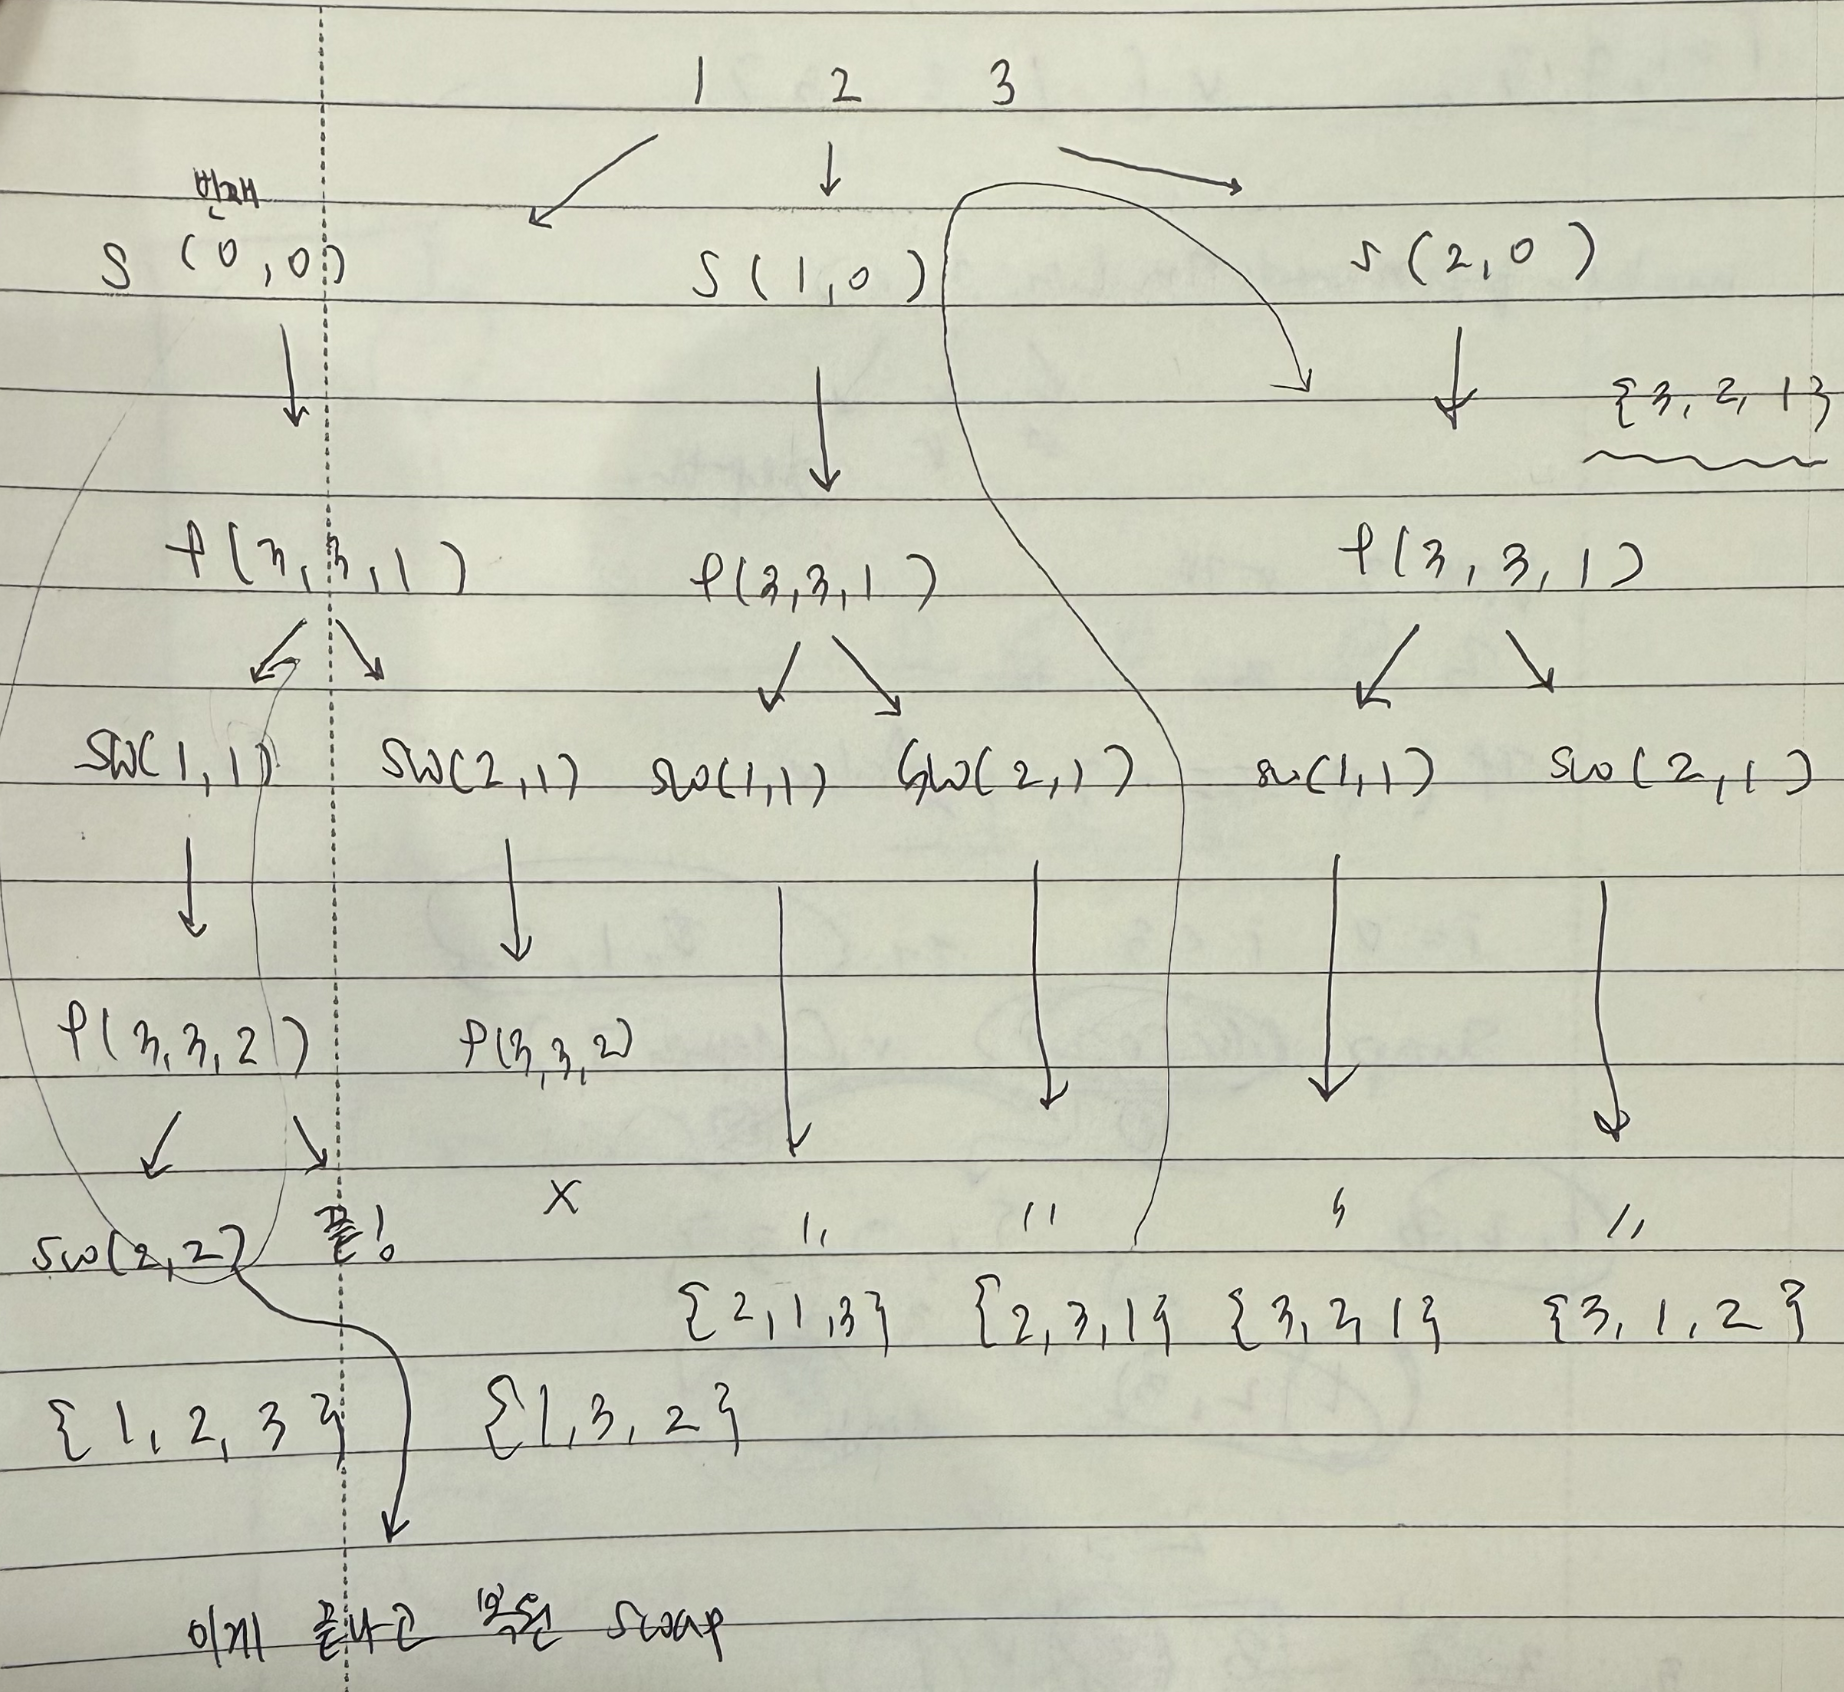 1 2 3
번째
S (0,0) S(1,0) S(2,0)
{3, 2, 1}
P(3,3,1) P(3,3,1) P(3,3,1)
SW(1,1) SW(2,1) SW(1,1) SW(2,1) SW(1,1) SW(2,1)
P(3,3,2) P(3,3,2)
SW(2,2) 끝! X 〃 〃 〃 〃
{2,1,3} {2,3,1} {3,2,1} {3,1,2}
{1,2,3} {1,3,2}
이게 끝나고 복원 swap